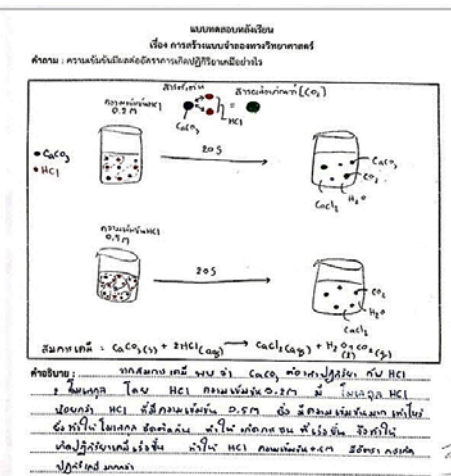 แบบทดสอบหลังเรียน
เรื่อง การสร้างแบบจำลองทางวิทยาศาสตร์
คำถาม : ความเข้มข้นมีผลต่ออัตราการเกิดปฏิกิริยาเคมีอย่างไร
สารตั้งต้น = สารผลิตภัณฑ์ (CO₂)
ความเข้มข้น HCl
0.2 M
CaCO₃ HCl
CaCO₃
HCl
20 S
CaCO₃
CO₂
H₂O
CaCl₂
ความเข้มข้น HCl
0.5 M
20 S
CO₂
H₂O
CaCl₂
สมการเคมี = CaCO₃(s) + 2HCl(aq) → CaCl₂(aq) + H₂O(l) + CO₂(g)
คำอธิบาย : จากสมการเคมี พบว่า CaCO₃ ต้องทำปฏิกิริยา กับ HCl
2 โมเลกุล โดย HCl ความเข้มข้น 0.2 M มี โมเลกุล HCl
น้อยกว่า HCl ที่มีความเข้มข้น 0.5 M ยิ่ง มีความเข้มข้นมาก เท่าไหร่
ยิ่งทำให้ โมเลกุล ชิดติดกัน ทำให้ เกิดการชน ที่เร็วขึ้น จึงทำให้
เกิดปฏิกิริยาเคมีเร็วขึ้น ทำให้ HCl ความเข้มข้น มีอัตรา การเกิด
ปฏิกิริยาเคมี มากกว่า